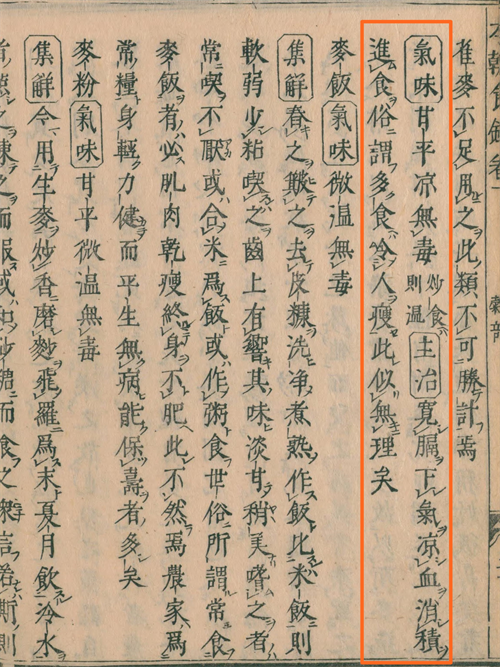 麥不足用之此類不可勝計焉
氣味 甘平凉無毒 炒食則温 主治 寛膈下氣凉血消積
進食俗謂多食冷人瘦此似無理矣
麥飯 氣味 微温無毒
集解 舂之簸之去皮糠洗净煮熟作飯比米飯則
軟弱少粘喫之齒上有響其味淡甘稍美嗜之者
常喫不厭或合米爲飯或作粥食世俗所謂常食
麥飯者必肌肉乾瘦終身不肥此不然焉農家爲
常糧身輕力健而平生無病能保壽者多矣
麥粉 氣味 甘平微温無毒
集解 今用生麥炒香磨麨飛羅爲末夏月飲冷水
之而服或和砂糖而食之衆言若斯則